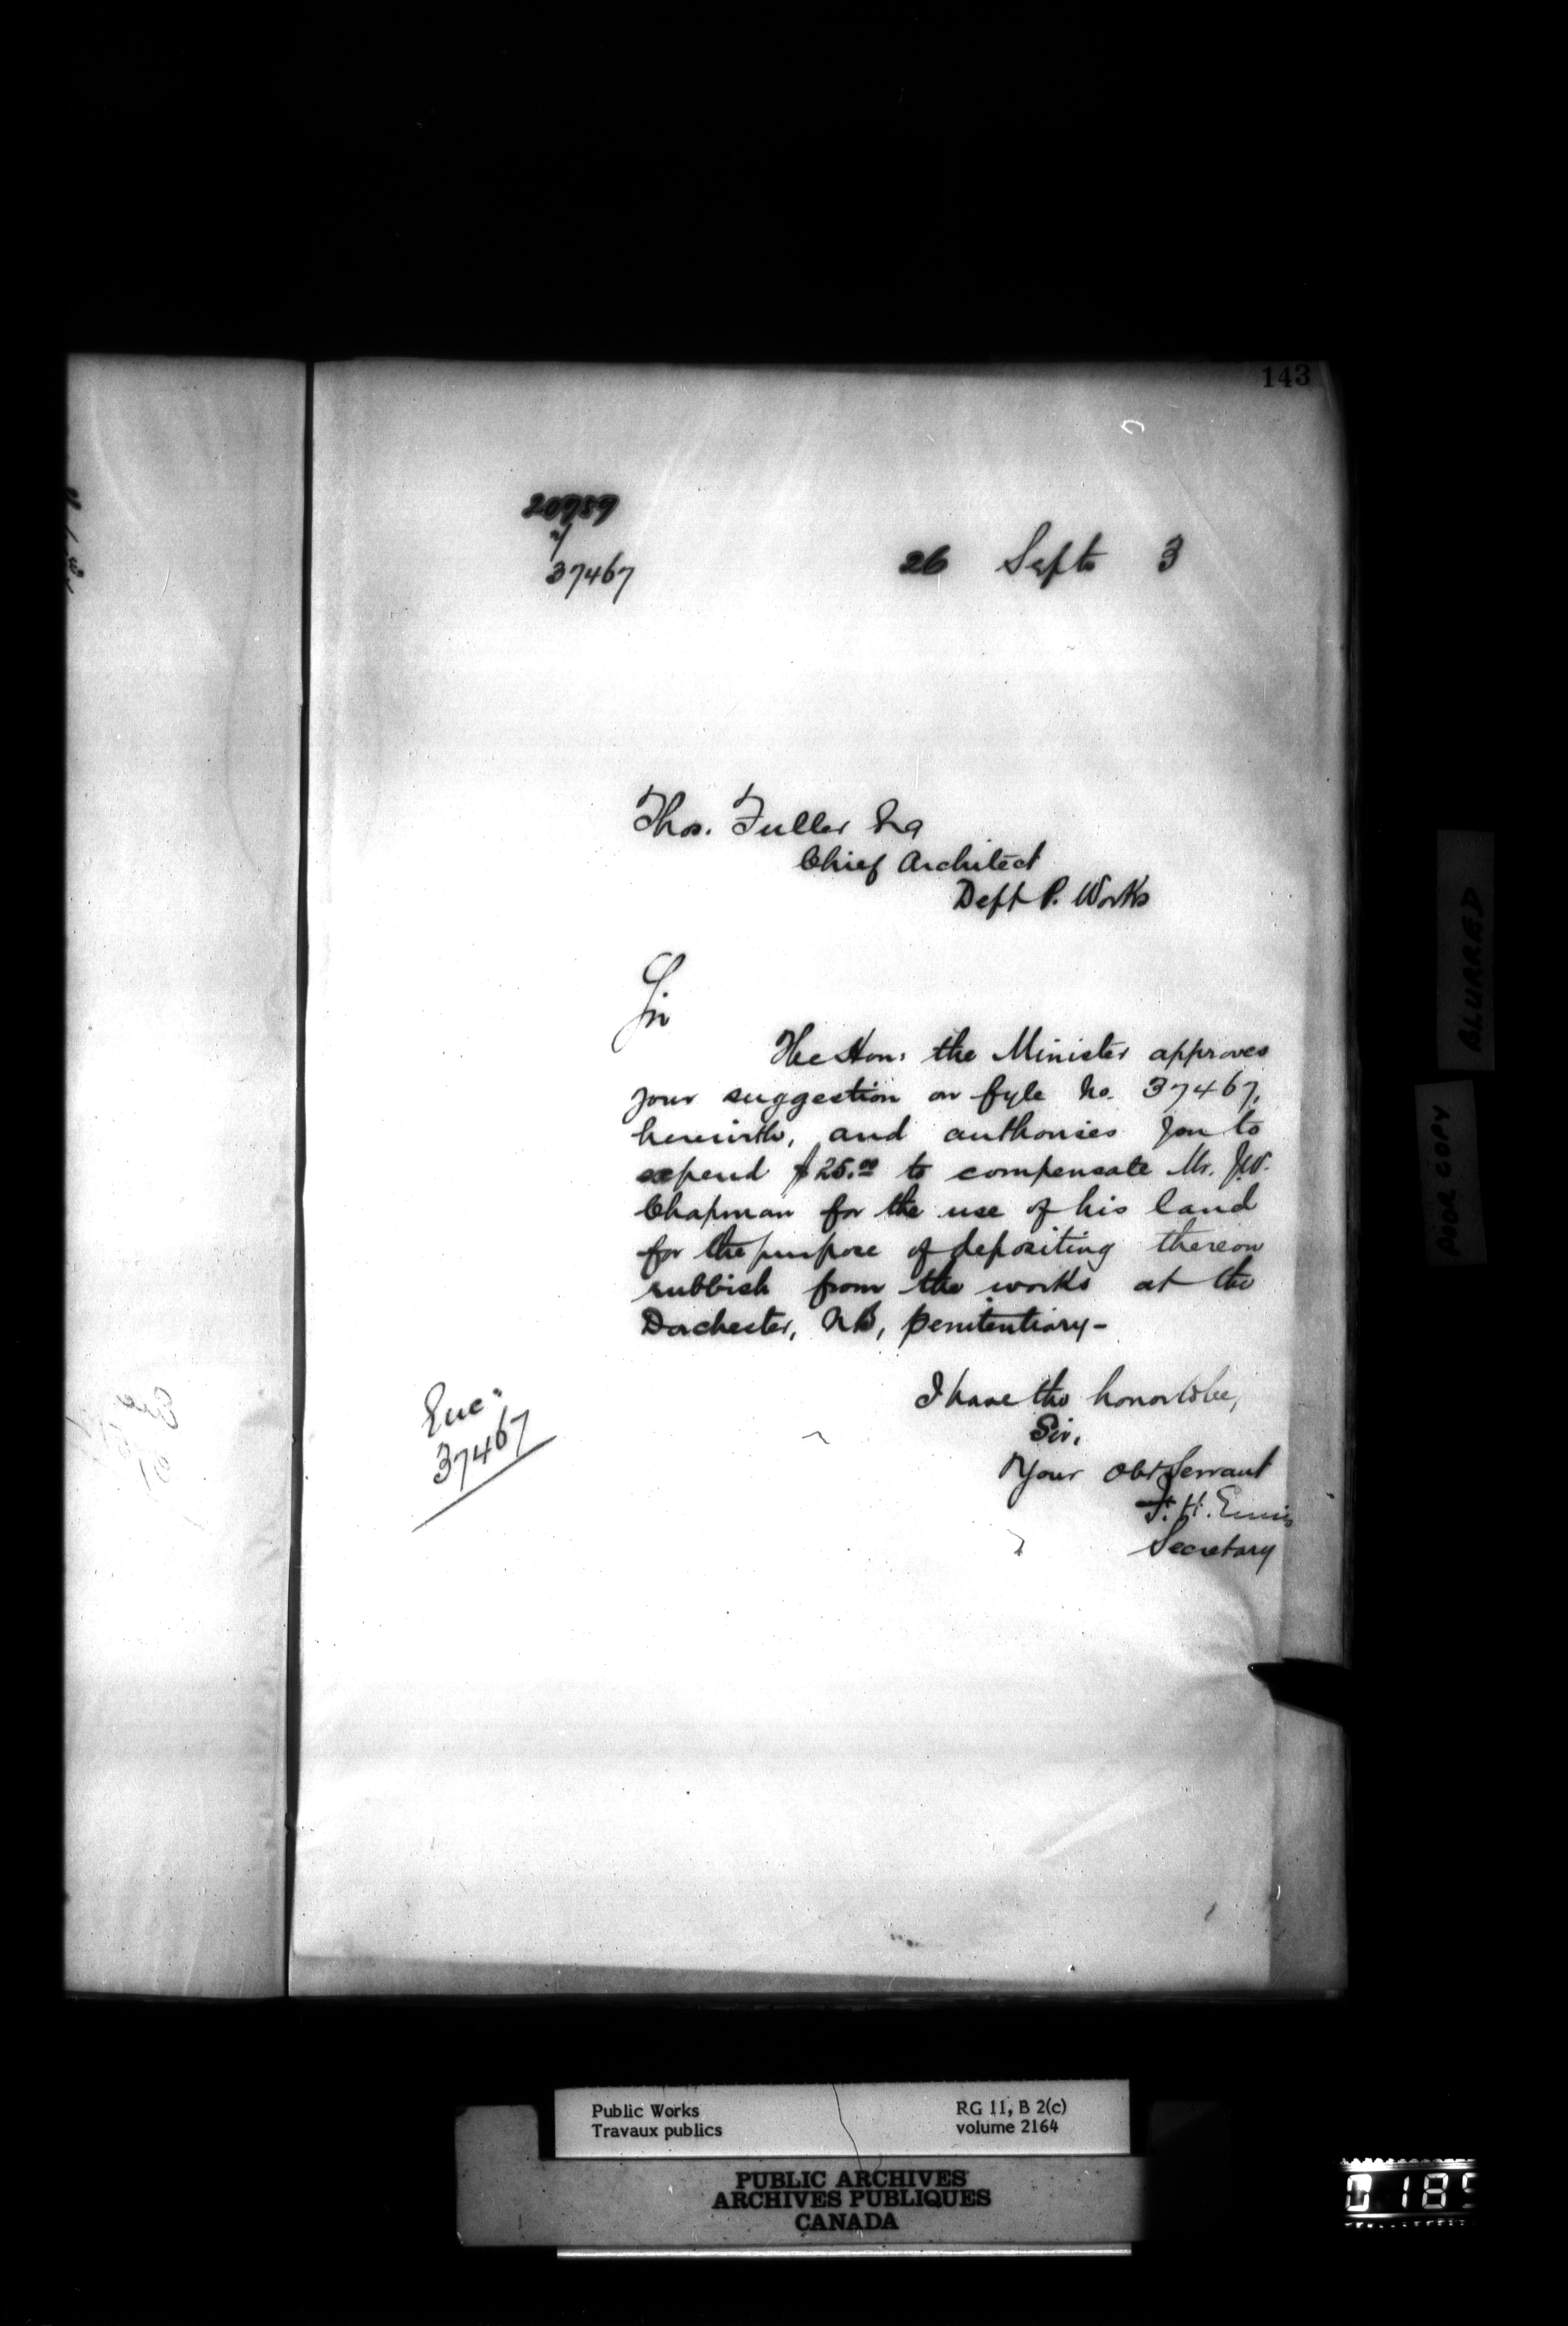 143
20959
37467
26 Septr 3
Thos. Fuller Esq
Chief Architect
Dept P. Works
Sir
The Hon: the Minister approves
your suggestion on fyle No. 37467,
herewith, and authorises you to
expend $25.00 to compensate Mr. J.W.
Chapman for the use of his land
for the purpose of depositing thereon
rubbish from the works at the
Dorchester, N.B, penitentiary-
I have the honor to be,
Sir,
Your Obt Servant
F. H. Ennis
Secretary
Enc:
37467
BLURRED
POOR COPY
Public Works
Travaux publics
RG 11, B 2(c)
volume 2164
PUBLIC ARCHIVES
ARCHIVES PUBLIQUES
CANADA